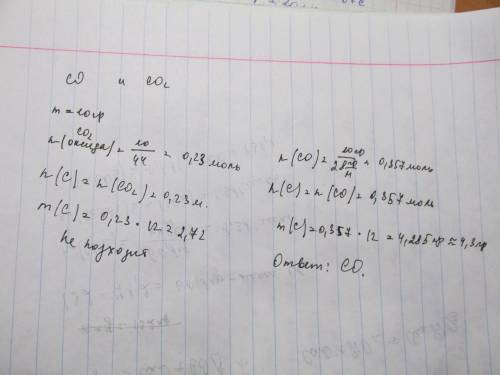 CO и CO₂
m = 10гр
CO₂
n(оксида) = 10/44 = 0,23 моль
n(C) = n(CO₂) = 0,23 м.
m(C) = 0,23 · 12 = 2,7г
не подходит
n(CO) = 10гр/28гр/м = 0,357 моль
n(C) = n(CO) = 0,357 моль
m(C) = 0,357 · 12 = 4,285 гр ≈ 4,3 гр
Ответ: CO.